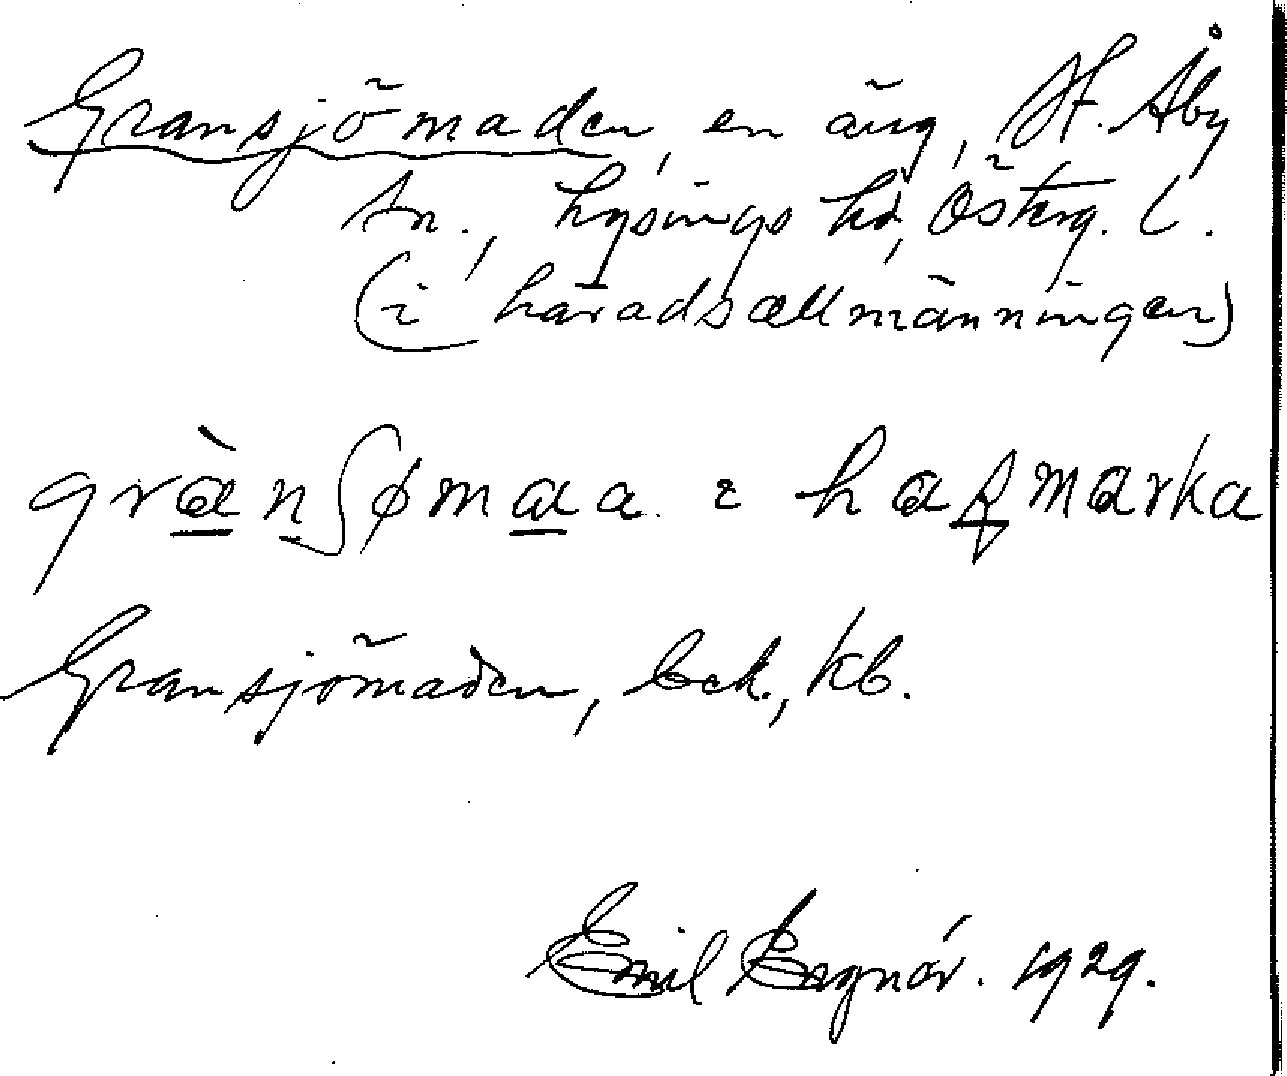 Gransjömaden, en äng, H. Åby
sn., Lysings hd, Österg. l.
(i häradsallmänningen)
grànʃømaa i haʂmarka
Gransjömaden, bek., kb.
Emil 1929.